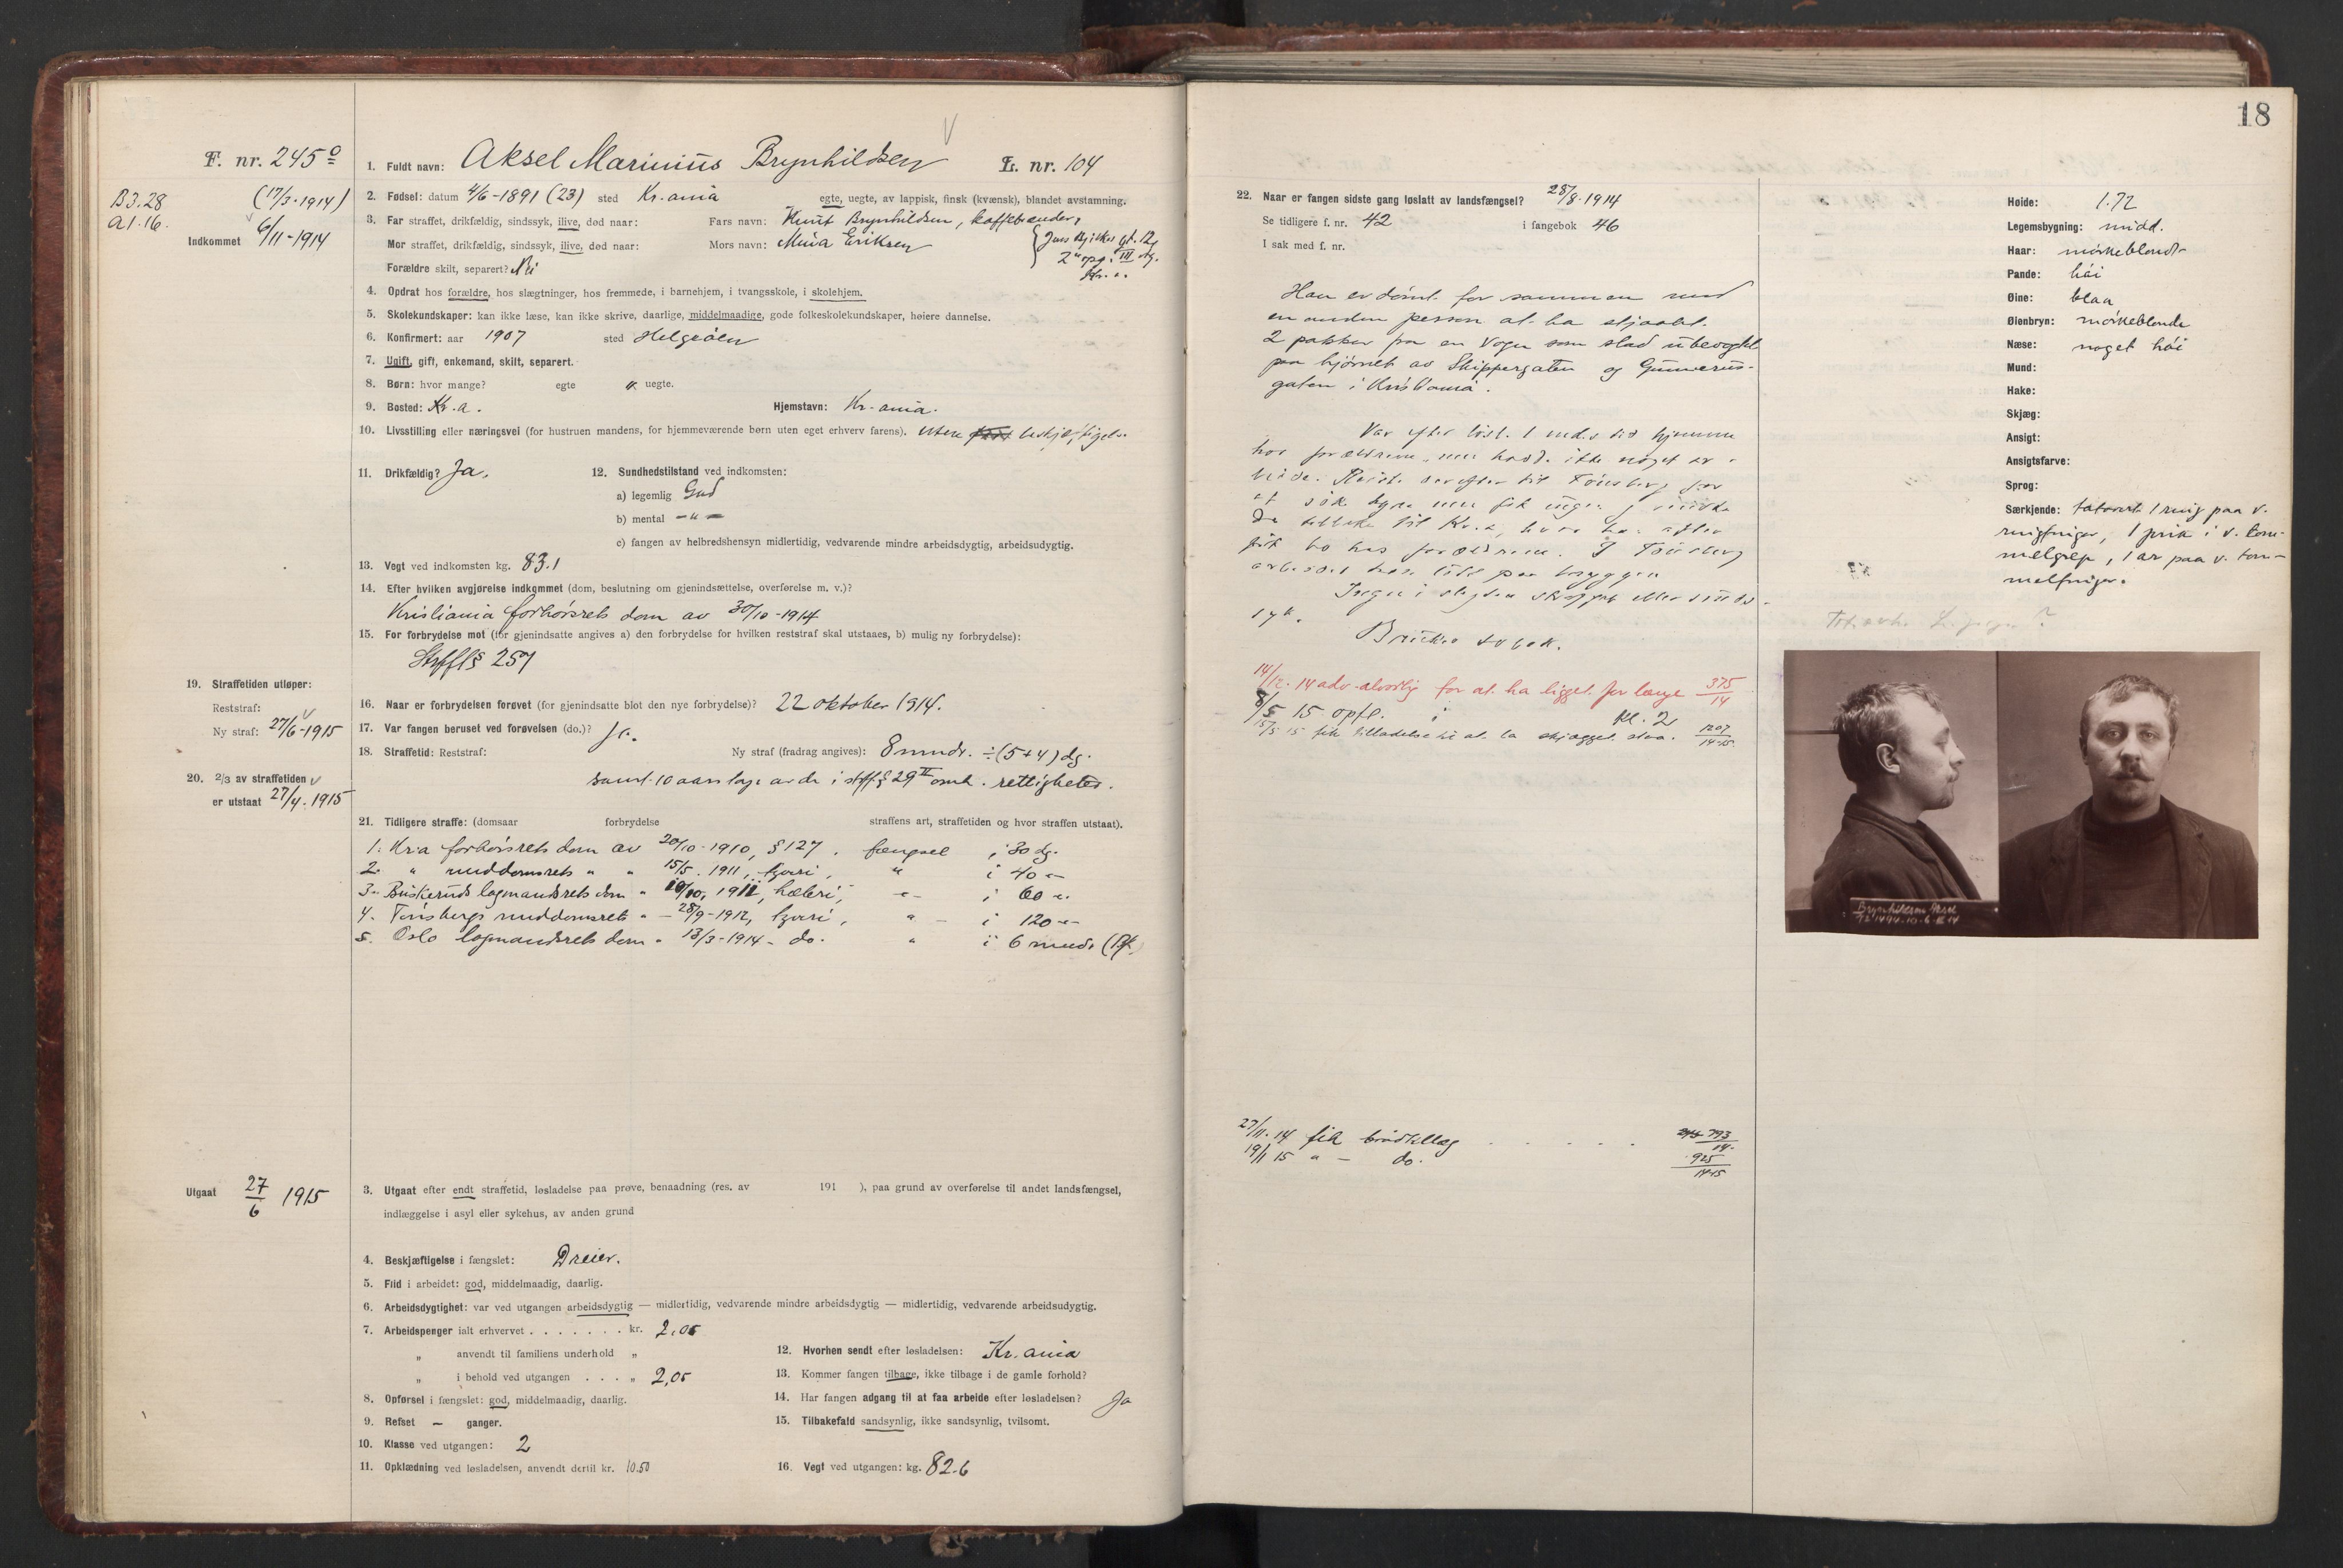 18
F. nr. 245
B3.28
a1.16.
(17/3-1914)
Indkommet 6/11-1914
1. Fuldt navn: Aksel Marinius Brynhildsen L. nr. 104
2. Fødsel: datum 4/6-1891 (23) sted Kr.ania egte, uegte, av lappisk, finsk (kvænsk), blandet avstamning.
3. Far straffet, drikfældig, sindssyk, ilive, død naar: Fars navn: Knut Brynhildsen, kaffebrænder,
Mor straffet, drikfældig, sindssyk, ilive, død naar: Mors navn: Mina Eriksen
Jens Bjelkes gt. 12
2 opg. III etg.
Kr.a.
Forældre skilt, separert? Nei
4. Opdrat hos forældre, hos slægtninger, hos fremmede, i barnehjem, i tvangsskole, i skolehjem.
5. Skolekundskaper: kan ikke læse, kan ikke skrive, daarlige, middelmaadige, gode folkeskolekundskaper, høiere dannelse.
6. Konfirmert: aar 1907 sted Helgøen
7. Ugift, gift, enkemand, skilt, separert.
8. Børn: hvor mange? egte uegte.
9. Bosted: Kr.a. Hjemstavn: Kr.ania.
10. Livsstilling eller næringsvei (for hustruen mandens, for hjemmeværende børn uten eget erhverv farens). uten beskjæftigelse
11. Drikfældig? Ja. 12. Sundhedstilstand ved indkomsten:
a) legemlig God
b) mental -"-
c) fangen av helbredshensyn midlertidig, vedvarende mindre arbeidsdygtig, arbeidsudygtig.
13. Vegt ved indkomsten kg. 83.1
14. Efter hvilken avgjørelse indkommet (dom, beslutning om gjenindsættelse, overførelse m. v.)?
Kristiania forhørsrets dom av 30/10-1914
15. For forbrydelse mot (for gjenindsatte angives a) den forbrydelse for hvilken reststraf skal utstaaes, b) mulig ny forbrydelse):
Strfl § 257
19. Straffetiden utløper:
Reststraf:
Ny straf: 27/6-1915
16. Naar er forbrydelsen forøvet (for gjenindsatte blot den nye forbrydelse)? 22 oktober 1914.
17. Var fangen beruset ved forøvelsen (do.)? Ja.
18. Straffetid: Reststraf: Ny straf (fradrag angives): 8 mndr. ÷ (5+4) dg.
samt 10 aars tap av de i strfl § 29 II omh. rettigheter.
20. 2/3 av straffetiden
er utstaat 27/4. 1915
21. Tidligere straffe: (domsaar forbrydelse straffens art, straffetiden og hvor straffen utstaat).
1. Kr.a forhørsrets dom av 20/10-1910, § 127, fængsel i 30 dg.
2. " meddomsrets " " 15/5. 1911, tyveri, " i 40 "
3. Buskeruds lagmandsrets dom " 10/10, 1911, hæleri, " i 60 "
4. Tønsbergs meddomsret " 28/9-1912, tyveri, " i 120 "
5. Oslo lagmandsrets dom " 13/3-1914 - do. " i 6 mndr
Utgaat 27/6 1915
3. Utgaat efter endt straffetid, løsladelse paa prøve, benaadning (res. av 191 ), paa grund av overførelse til andet landsfængsel,
indlæggelse i asyl eller sykehus, av anden grund
4. Beskjæftigelse i fængslet: Dreier.
5. Flid i arbeidet: god, middelmaadig, daarlig.
6. Arbeidsdygtighet: var ved utgangen arbeidsdygtig — midlertidig, vedvarende mindre arbeidsdygtig — midlertidig, vedvarende arbeidsudygtig.
7. Arbeidspenger ialt erhvervet . . . . . . . kr. 2,05
" anvendt til familiens underhold "
" i behold ved utgangen . . . " 2,05
8. Opførsel i fængslet: god, middelmaadig, daarlig.
9. Refset — ganger.
10. Klasse ved utgangen: 2
11. Opklædning ved løsladelsen, anvendt dertil kr. 10.50
12. Hvorhen sendt efter løsladelsen: Kr.ania
13. Kommer fangen tilbage, ikke tilbage i de gamle forhold?
14. Har fangen adgang til at faa arbeide efter løsladelsen? Ja
15. Tilbakefald sandsynlig, ikke sandsynlig, tvilsomt.
16. Vegt ved utgangen: kg. 82.6
22. Naar er fangen sidste gang løslatt av landsfængsel? 28/8-1914
Se tidligere f. nr. 42 i fangebok 46
I sak med f. nr.
Han er dømt for sammen med
en anden person at ha stjaalet
2 pakker fra en vogn som stod ubevogtet
paa hjørnet av Skippergaten og Gunnerus-
gaten i Kristiania.
Var efter løsl. 1 mds tid hjemme
hos forældrene, men hadde ikke noget ar-
beide. Reiste derefter til Tønsberg for
at søke hyre men fik ingen, reiste
da tilbake til Kr.a, hvor han atter
fik bo hos forældrene. I Tønsberg
arbeidet han litt paa bryggen
Ingen i slegten straffet eller sinds-
syk.
Bruker tobak.
14/12-14 adv. alvorlig for at ha ligget for længe 375/14
8/5 15 opfl. i kl. 2
15/5 15 fik tilladelse til at la skjægget staa. 1207/14-15
27/11-14 fik brødtillæg . . . . . 793/14
19/1 15 " — do. 925/14-15
Høide: 1.72
Legemsbygning: midd.
Haar: mørkeblondt
Pande: høi
Øine: blaa
Øienbryn: mørkeblonde
Næse: noget høi
Mund:
Hake:
Skjæg:
Ansigt:
Ansigtsfarve:
Sprog:
Særkjende: tatovert 1 ring paa v.
ringfinger, 1 prik i v. tom-
melgrep, 1 ar paa v. tom-
melfinger.
Brynhildsen Aksel